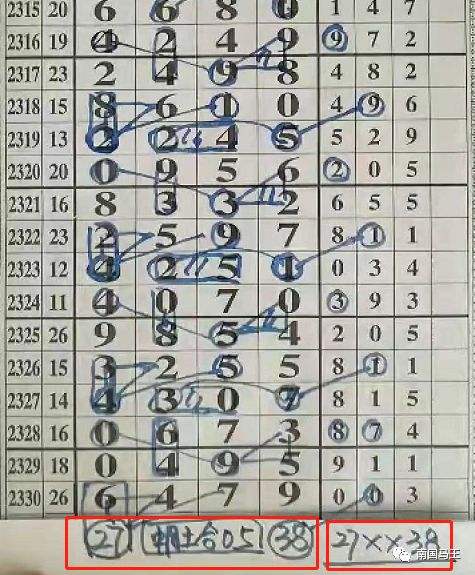 2315 20 6 6 8 0 1 4 7
2316 19 4 2 4 9 9 7 2
2317 23 2 4 9 8 4 8 2
2318 15 8 6 1 0 4 9 6
2319 13 2 2 4 5 5 2 9
2320 20 0 9 5 6 2 0 5
2321 16 8 3 3 2 6 5 5
2322 23 2 5 9 7 8 1 1
2323 12 4 2 5 1 0 3 4
2324 11 4 0 7 0 3 9 3
2325 26 9 8 5 4 2 0 5
2326 15 3 2 5 5 8 1 1
2327 14 4 3 0 7 8 1 5
2328 16 0 6 7 3 8 7 4
2329 18 0 4 9 5 9 1 1
2330 26 6 4 7 9 0 0 3
27 合05 38 27××38
南国马王